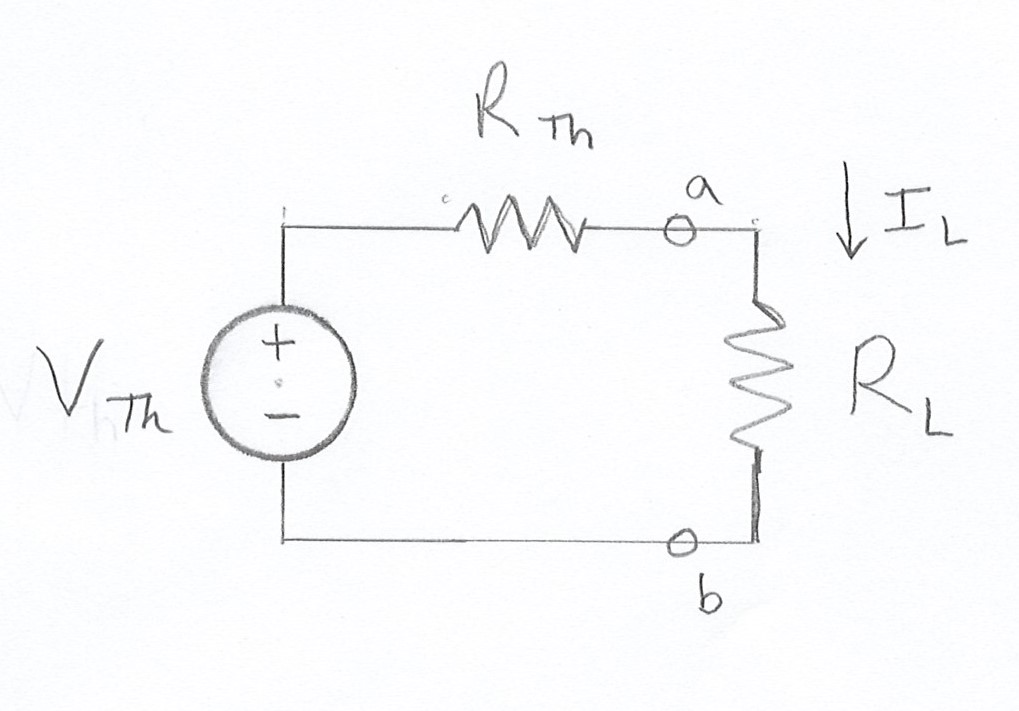 R Th
a
I L
+
V Th
R L
−
b